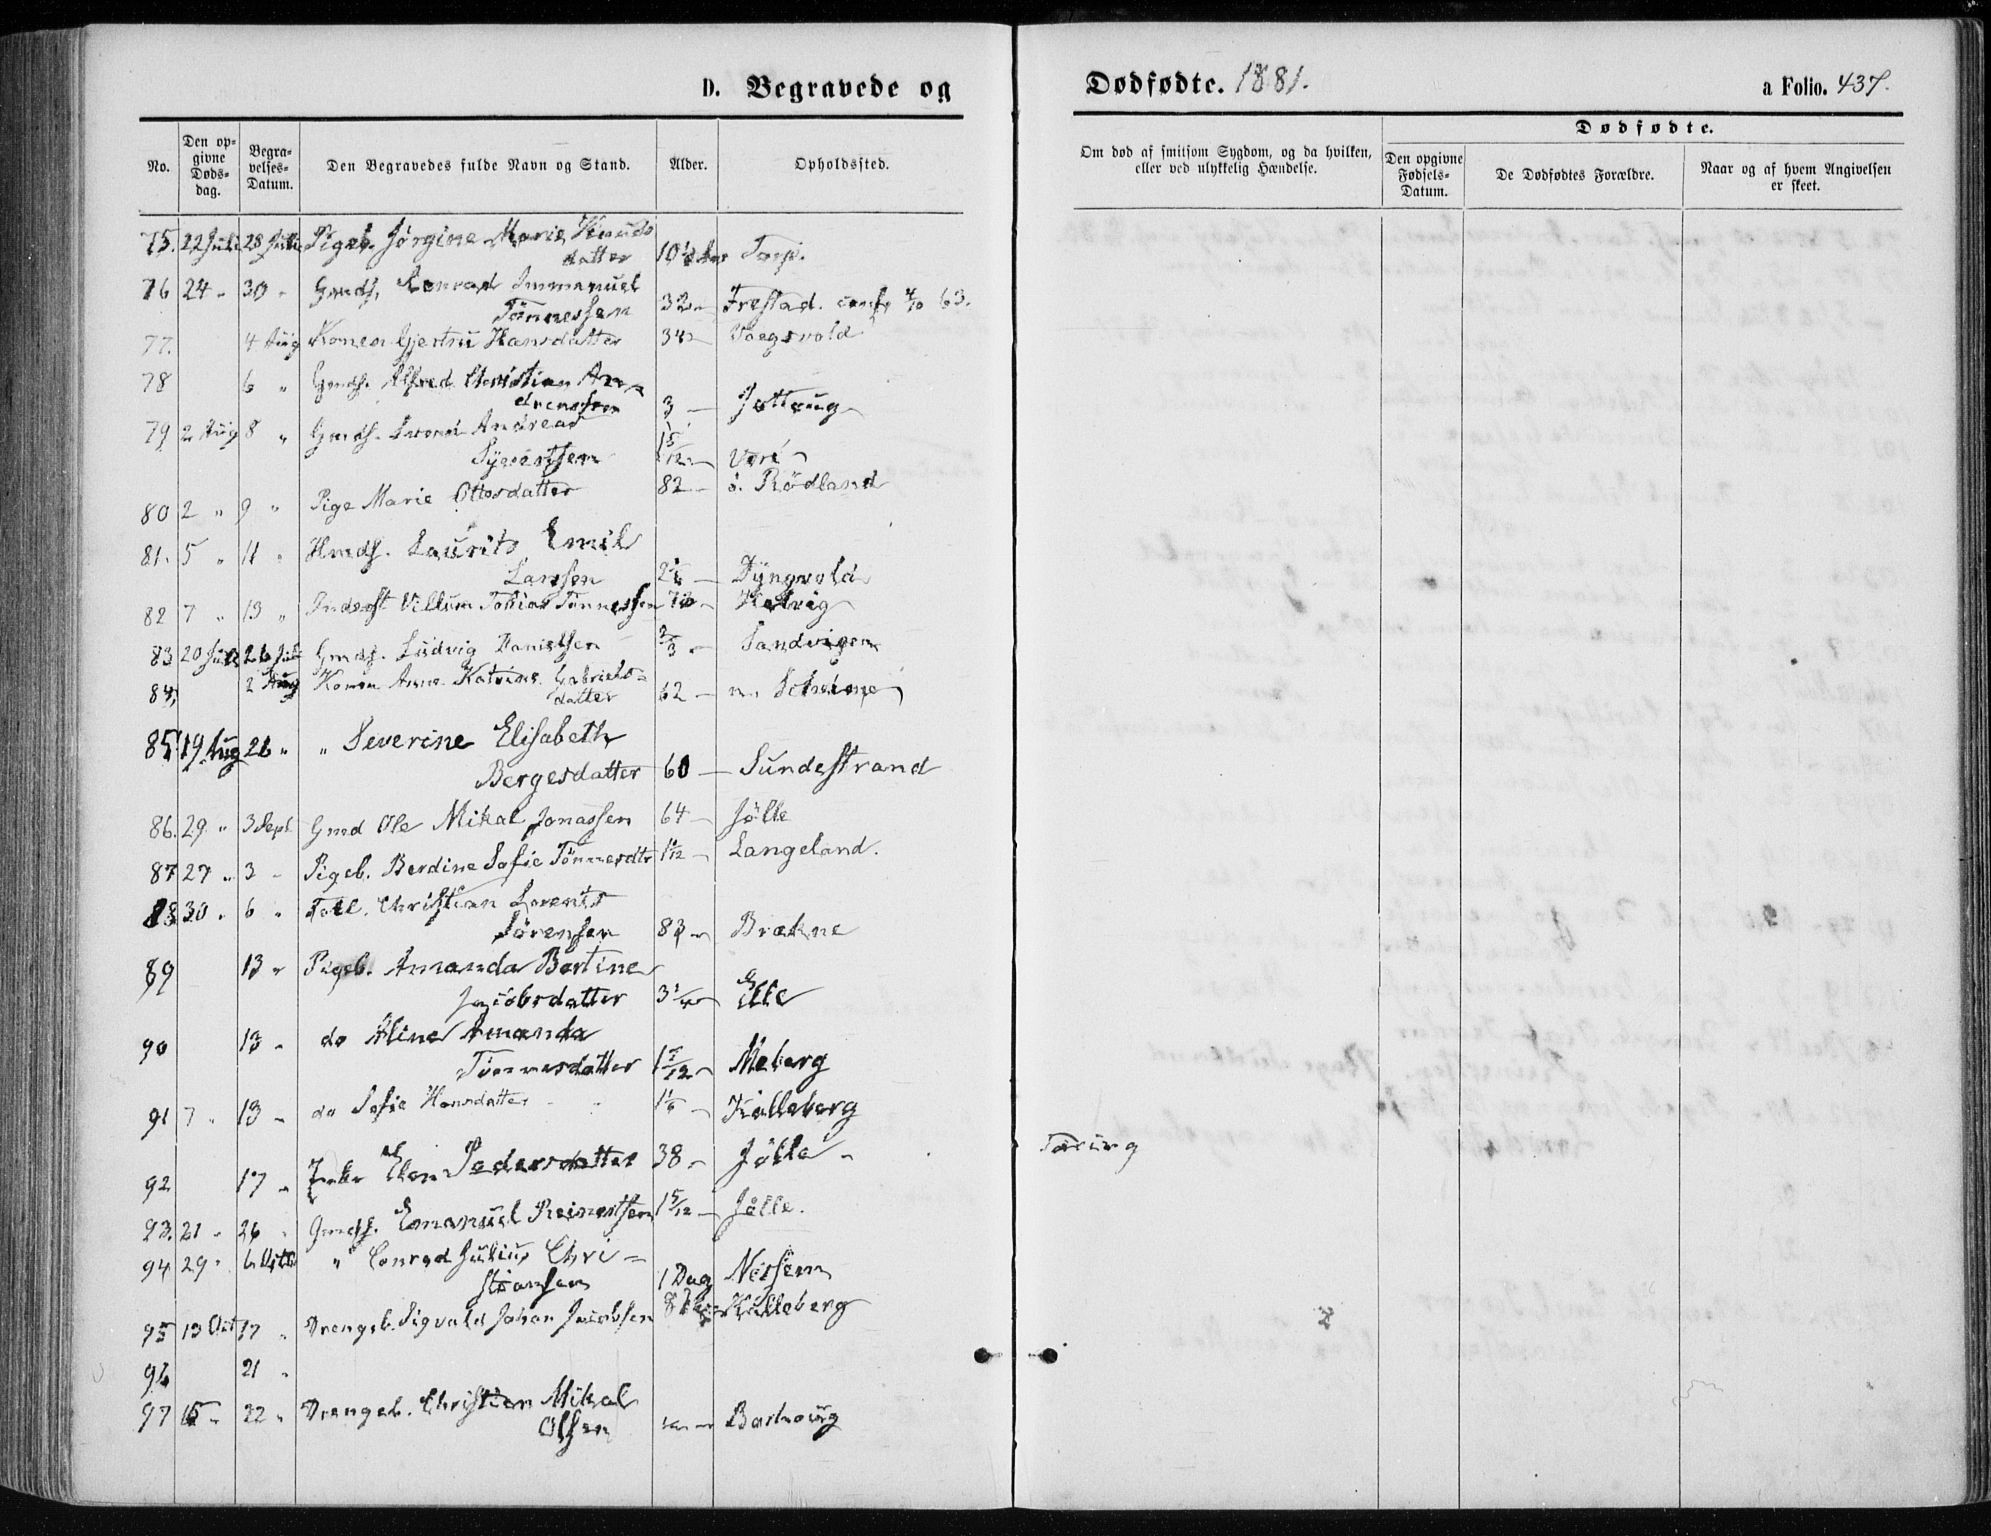 D. Begravede og
Dødfødte. 1881.
a Folio. 437.
No.
Den opgivne Dødsdag.
Begravelses-Datum.
Den Begravedes fulde Navn og Stand.
Alder.
Opholdssted.
Om død af smitsom Sygdom, og da hvilken, eller ved ulykkelig Hændelse.
Dødfødte.
Den opgivne Fødsels-Datum.
De Dødfødtes Forældre.
Naar og af hvem Angivelsen er skeet.
75. 22 Juli 28 Juli Pigeb. Jörgine Marie Knuds
datter Torp.
76 24 " 30 " Gmds. Konrad Immanuel
Tönnessen 32 - Frestad. conf. 4/10 63.
77. 4 Aug Konen Gjertru Hansdatter 34 - Vaagsvold
78 6 " Gmds. Alfred Christian An-
dreassen 3 - Jottoug
79 2 Aug 8 " Gmds. Andreas
Syvertsen
80 2 " 9 " Pige Marie Ottesdatter 82 - ö. Rödland
81. 5 " 11 " Hmds. Laurits Emil
Larssen Dyngvold
82 7 " 13 " Inderst Villum Tobias Tönnessen Helvig
83 20 Juli 26 Juli Gmds. Ludvig Danielsen 2/3 - Sandvigen
84, 2 Aug Konen Anne Katrine Gabriels-
datter 62 - n.
85 19 Aug 26 " " Severine Elisabeth
Bergesdatter 60 - Sundestrand
86. 29 " 3 Sept Gmd Ole Mikal Jonassen 64 - Jölle
87 27 " 3 - Pigeb. Berdine Sofie Tönnesdtr Langeland.
88 30 " 6 " Christian Lorents
Sörensen 83 - Brækne
89 13 " Pigeb. Amanda Bertine
Jacobsdatter Elle
90 13 " do Aline Amanda
Tönnesdatter 1 7/12 - Meberg
91 7 " 13 - do Sofie Hansdatter Kalleberg
92 17 " Enke Elen Pedersdatter 38 - Jölle - Tæring
93. 21 " 26 " Gmds. Emanuel Reinertsen 1 5/12 - Jölle.
94 29 " 6 Octb " Conrad Julius Chri-
stiansen 1 Dag
95 13 Oct 17 " Drengeb. Sigvald Johan Jacobsen Kalleberg
96 21 "
97 15 " 22 " Drengeb. Christian Mikal
Olsen